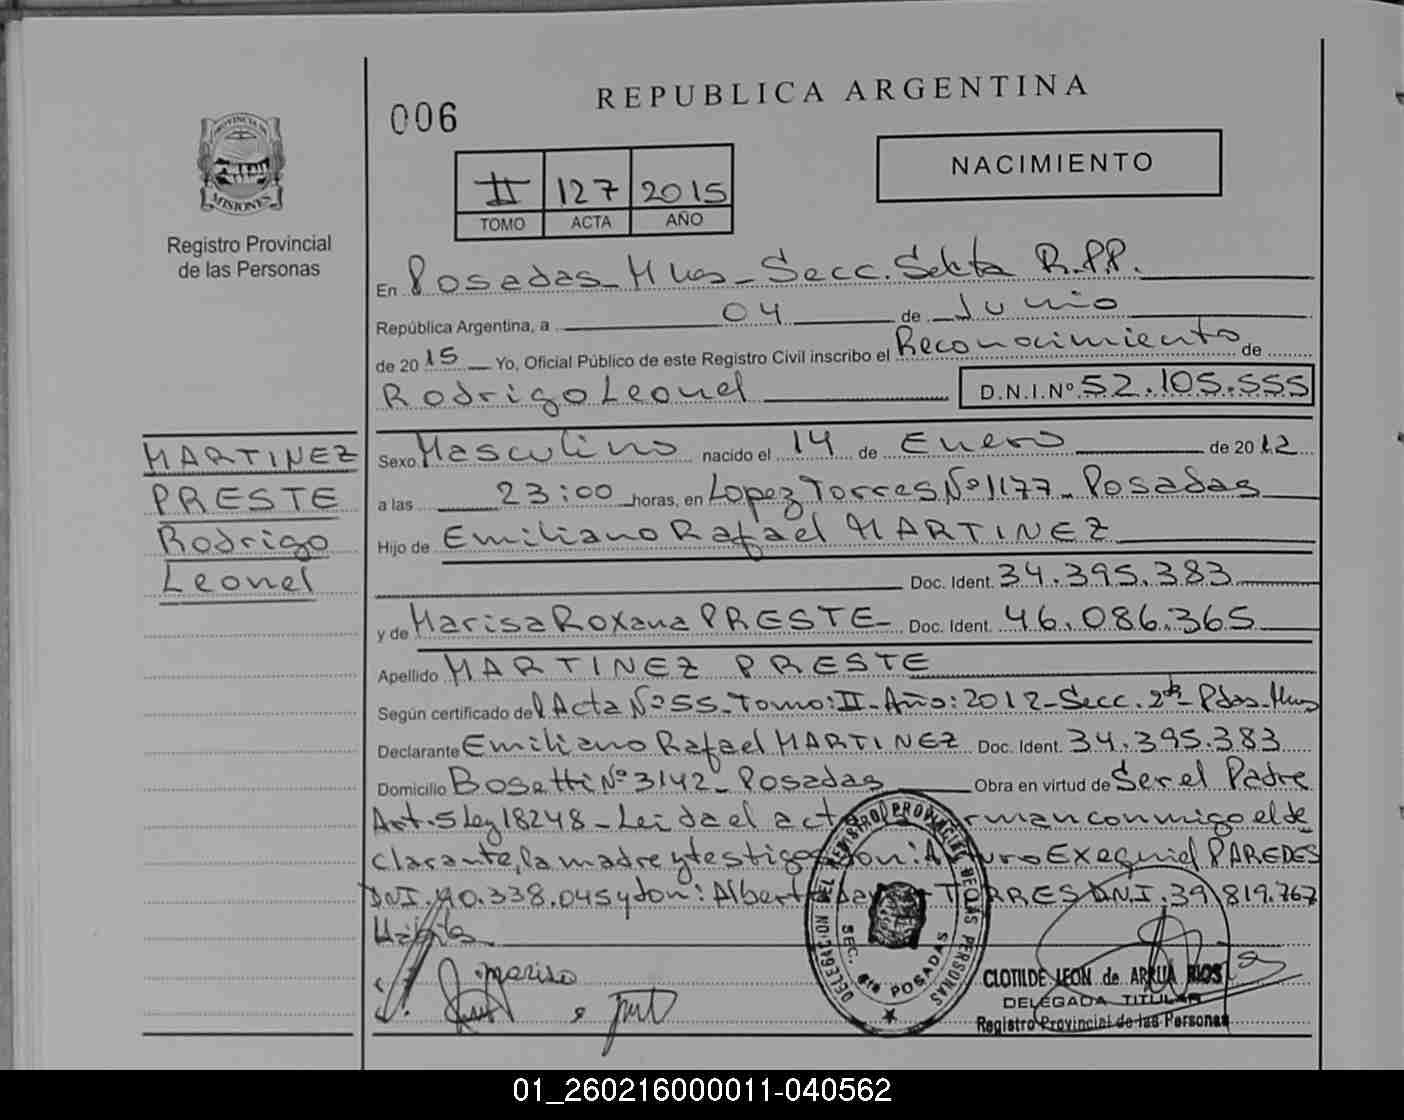 REPUBLICA ARGENTINA
006
NACIMIENTO
II 127 2015
TOMO ACTA AÑO
PROVINCIA DE
MISIONES
Registro Provincial
de las Personas
En Posadas - Mnes - Secc. Sexta R.P.P.
República Argentina, a 04 de Junio
de 2015 Yo, Oficial Público de este Registro Civil inscribo el Reconocimiento de
Rodrigo Leonel D.N.I.Nº 52.105.555
MARTINEZ
PRESTE
Rodrigo
Leonel
Sexo Masculino nacido el 14 de Enero de 2012
a las 23:00 horas, en Lopez Torres Nº 1177 - Posadas
Hijo de Emiliano Rafael MARTINEZ
Doc. Ident. 34.395.383
y de Marisa Roxana PRESTE - Doc. Ident. 46.086.365
Apellido MARTINEZ PRESTE
Según certificado del Acta Nº 55 - Tomo: II - Año: 2012 - Secc. 2da - Pdas - Mnes
Declarante Emiliano Rafael MARTINEZ Doc. Ident. 34.395.383
Domicilio Bosetti Nº 3142 - Posadas Obra en virtud de Ser el Padre
Art. 5 Ley 18248 - Leida el acta firman conmigo el de
clarante, la madre y testigos don: Arturo Exequiel PAREDES
DNI. 40.338.045 y don: Alberto TORRES DNI. 39.819.767
DELEGACION DEL REGISTRO PROVINCIAL DE LAS PERSONAS
SEC. 6ta POSADAS
marisa
CLOTILDE LEON de ARRUA RIOS
DELEGADA TITULAR
Registro Provincial de las Personas
01_260216000011-040562